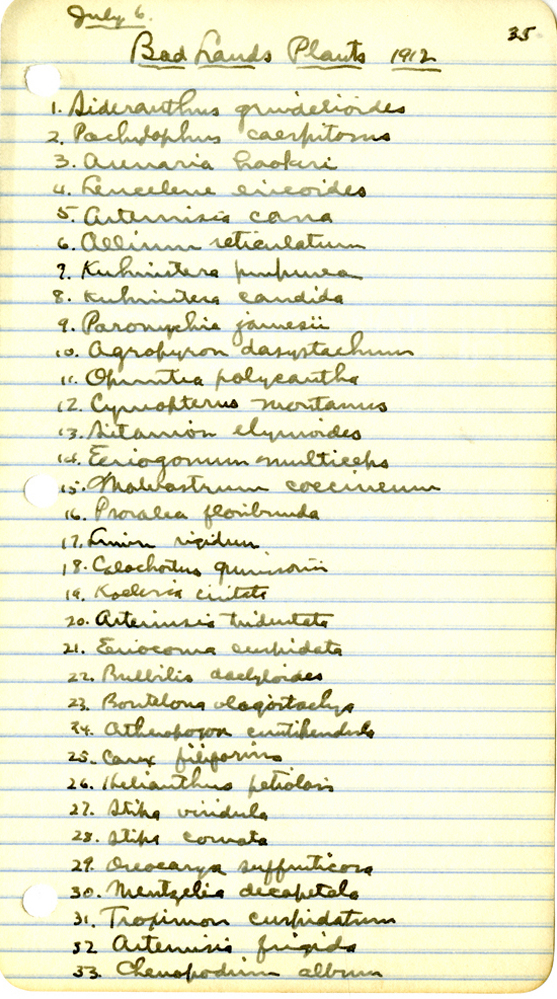 July 6.
35
Bad Lands Plants 1912
1. Sideranthus grindelioides
2. Pachylophus caespitosus
3. Arenaria hookeri
4. Leucelene ericoides
5. Artemisia cana
6. Allium reticulatum
7. Kuhnistera purpurea
8. Kuhnistera candida
9. Paronychia jamesii
10. Agropyron dasystachum
11. Opuntia polycantha
12. Cymopterus montanus
13. Sitanion elymoides
14. Eriogonum multiceps
15. Malvastrum coccineum
16. Psoralea floribunda
17. Linum rigidum
18. Calochortus gunnisonii
19. Koeleria cristata
20. Artemisia tridentata
21. Eriocoma cuspidata
22. Bulbilis dactyloides
23. Bouteloua oligostachya
24. Atheropogon curtipendula
25. Carex filiformis
26. Helianthus petiolaris
27. Stipa viridula
28. Stipa comata
29. Oreocarya suffruticosa
30. Mentzelia decapetala
31. Troximon cuspidatum
32 Artemisia frigida
33. Chenopodium album